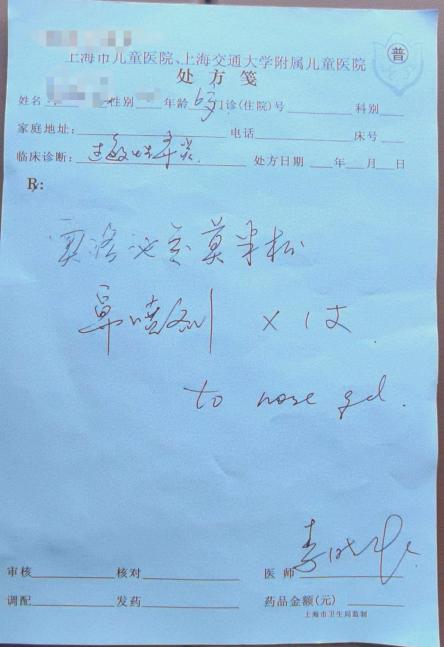 上海市儿童医院、上海交通大学附属儿童医院
普
处方笺
姓名 性别 年龄 6岁 门诊(住院)号 科别
家庭地址: 电话 床号
临床诊断: 过敏性鼻炎. 处方日期 年 月 日
R:
莫米松
鼻喷剂 × 1支
to nose qd.
审核 核对 医师
调配 发药 药品金额(元)
上海市卫生局监制